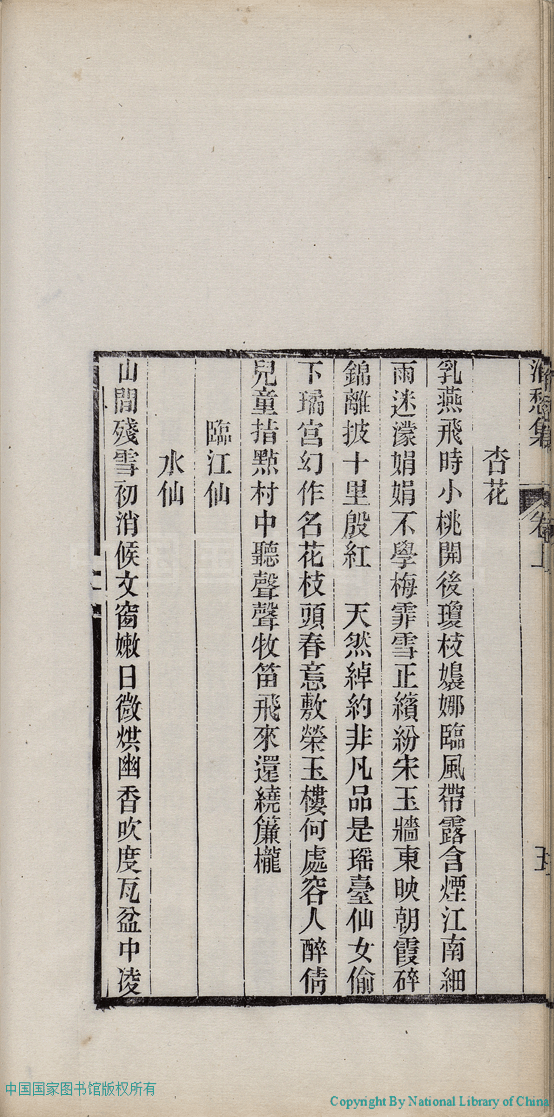 集 卷上
杏花
乳燕飛時小桃開後瓊枝嬝娜臨風帶露含煙江南細
雨迷濛娟娟不學梅霏雪正繽紛宋玉牆東映朝霞碎
錦離披十里殷紅　天然綽約非凡品是瑶臺仙女偷
下璚宮幻作名花枝頭春意敷榮玉樓何處容人醉倩
兒童指㸃村中聽聲聲牧笛飛來還繞簾櫳
臨江仙
水仙
山閣殘雪初消候文窗嫩日微烘幽香吹度瓦盆中凌
中国国家图书馆版权所有
Copyright By National Library of China